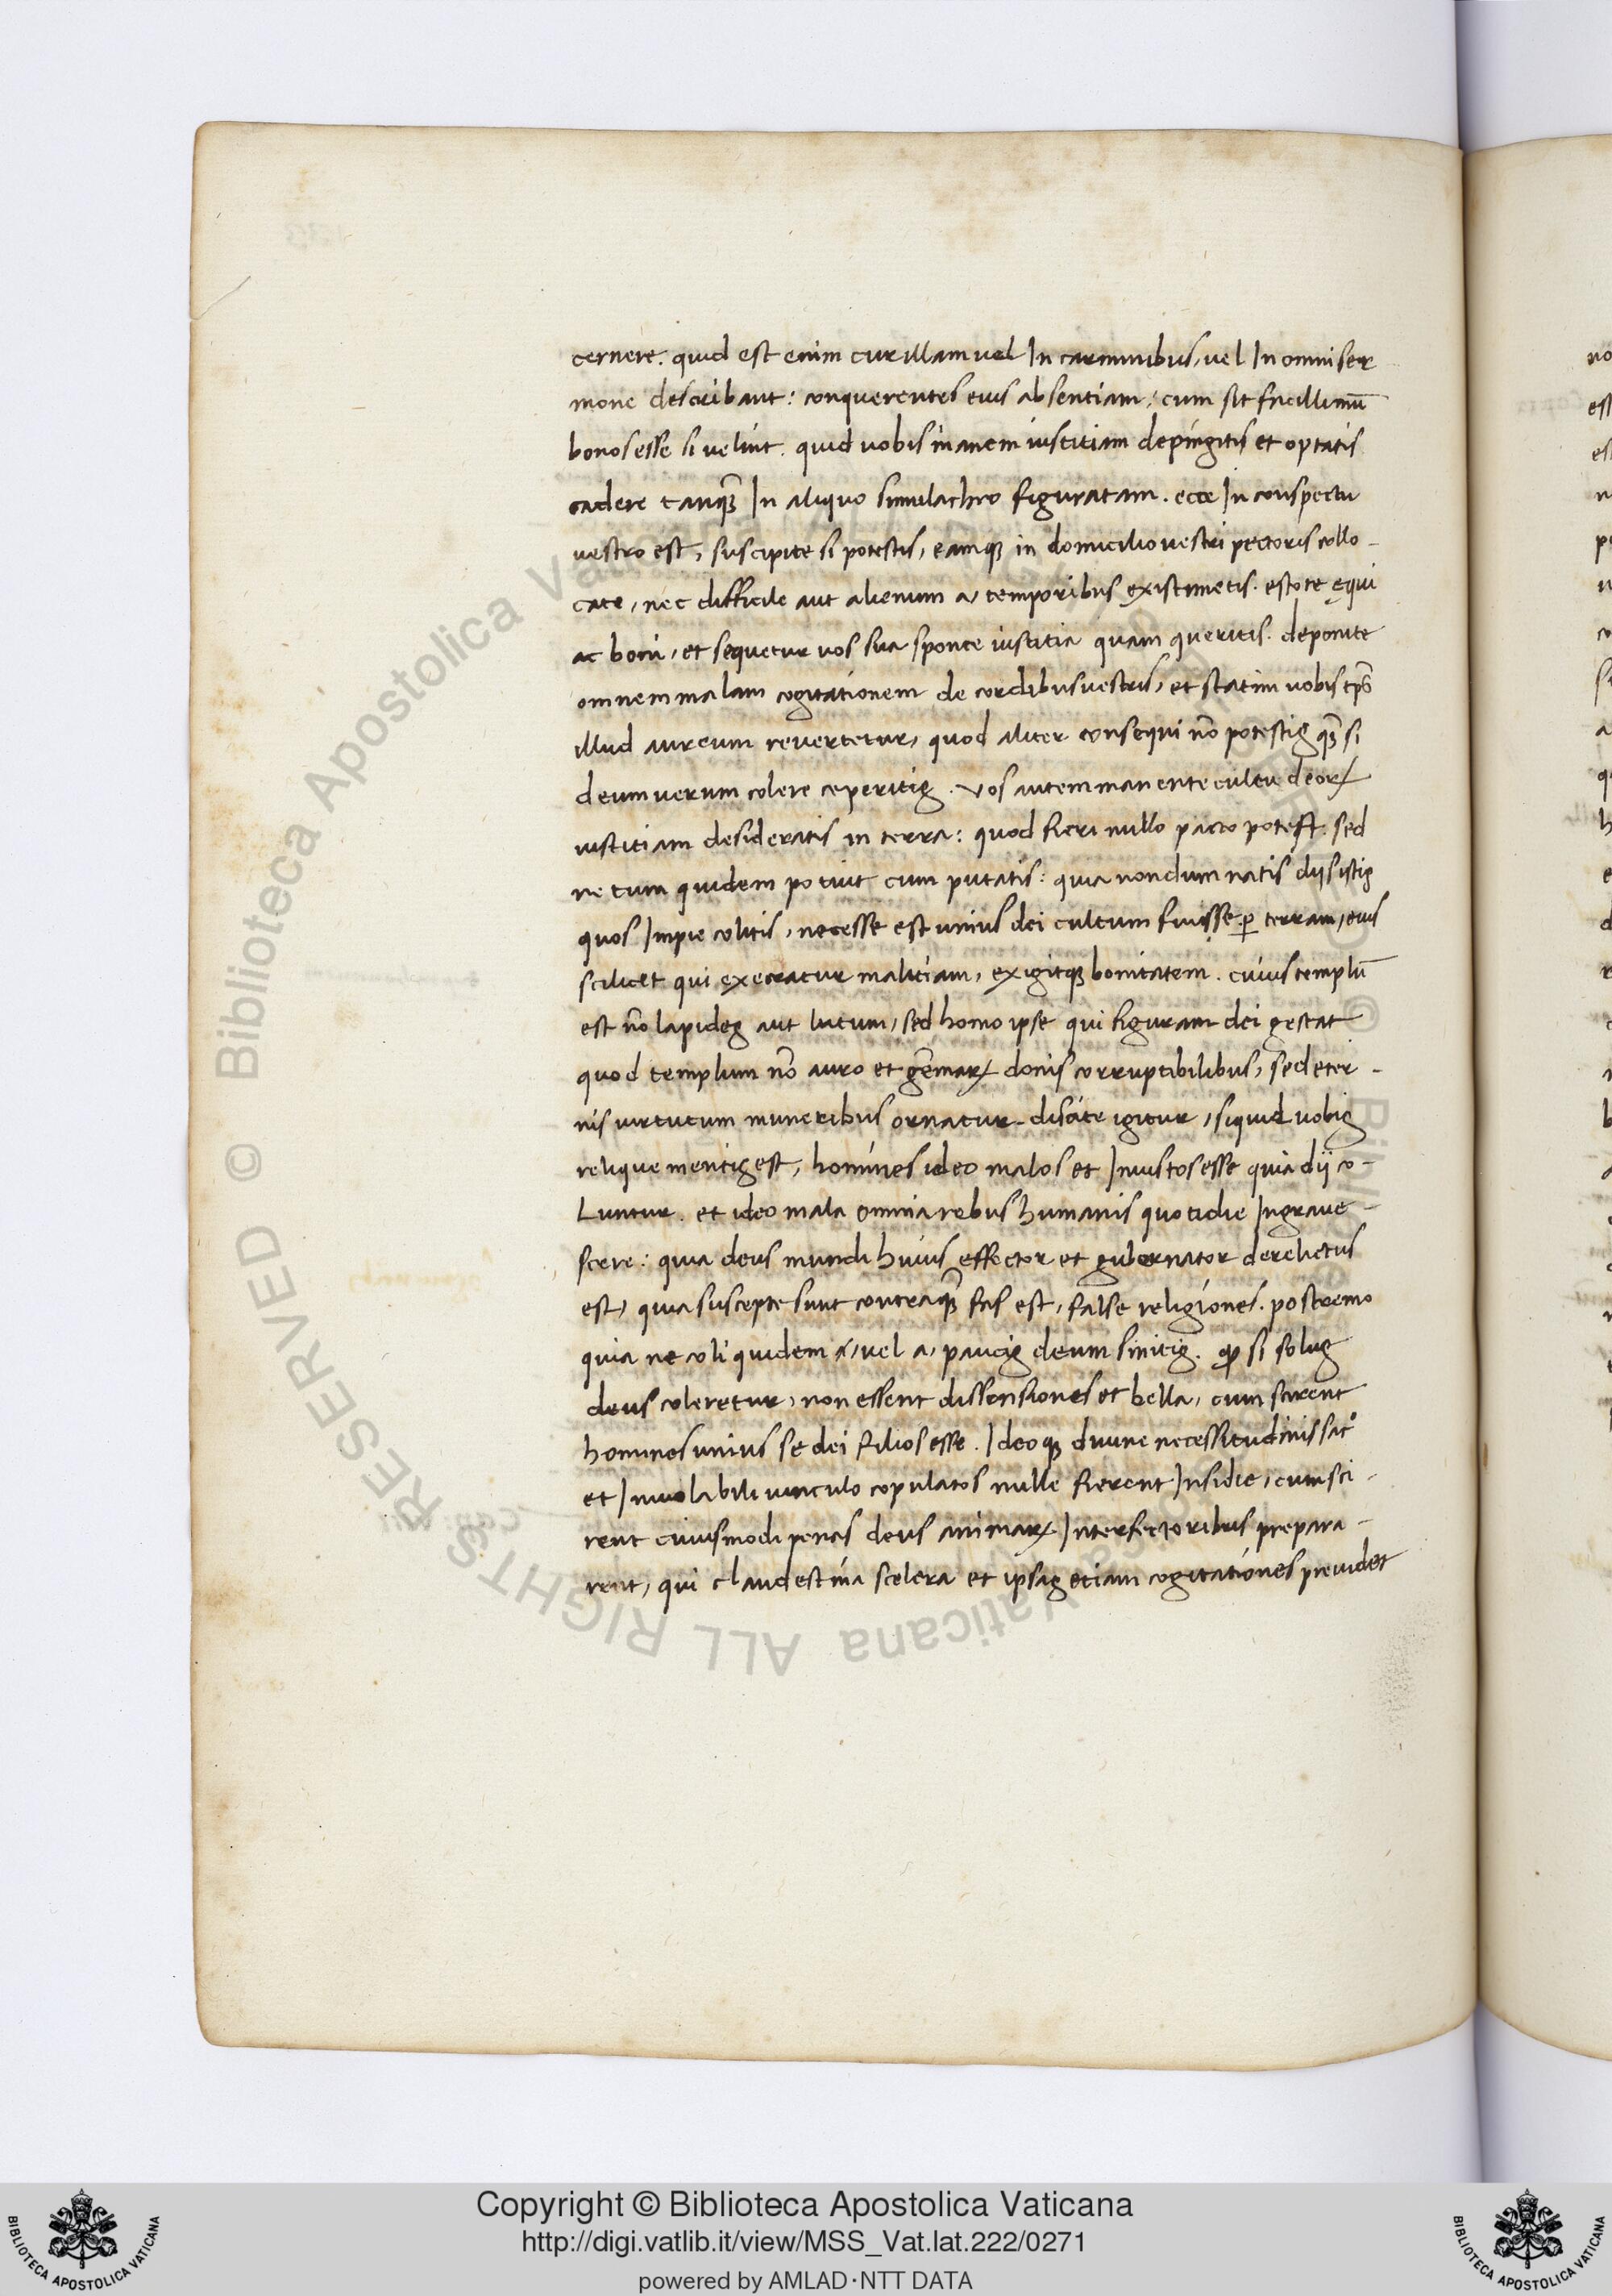 cernere. quid est enim cur illam uel In carminibus, uel In omni ser
mone describant: conquerentes eius absentiam, cum sit facillimū
bonos esse si uelint. quid uobis inanem iustitiam depingitis et optatis
cadere tanqȝ In aliquo simulachro figuratam. ecce In conspectu
uestro est, suscipite si potestis, eamqȝ in domicilio uestri pectoris collo-
cate, nec difficile aut alienum a, temporibus existimetis. estote ęqui
ac boni, et sequetur uos sua sponte iustitia quam queritis. deponite
omnem malam cogitationem de cordibus uestris, et statim uobis tp̄s
illud aureum reuertetur, quod aliter consequi nō potestis qȝ si
deum uerum colere ceperitis. Vos autem manente cultu deoꝝ
iustitiam desideratis in terra: quod fieri nullo pacto potest. sed
ne tum quidem potuit cum putatis: quia nondum natis dijs istis
quos Impie colitis, necesse est unius dei cultum fuisse ꝑ terram, eius
scilicet qui execratur malitiam, exigitqȝ bonitatem. cuius templū
est nō lapides aut lutum, sed homo ipse qui figuram dei gestat
quod templum nō auro et gēmaꝝ donis corruptibilibus, sed eter-
nis uirtutum muneribus ornatur. discite igitur, si quid uobis
relique mentis est, homines ideo malos et Iniustos esse quia dij co-
Luntur. et ideo mala omnia rebus humanis quotidie Ingraue-
scere: quia deus mundi huius effector et gubernator derelictus
est, quia suscepte sunt contra qȝ fas est, false religiones. postremo
quia ne coli quidem a, uel a, paucis deum sinitis. ꝙ si solus
deus coleretur, non essent dissensiones et bella, cum scirent
homines unius se dei filios esse. Ideoqȝ diuine necessitudinis sac̊
et Inuiolabili uinculo copulatos nulle fierent Insidie, cum sci-
rent cuiusmodi penas deus animaꝝ Interfectoribus prepara-
rent, qui clandestina scelera et ipsas etiam cogitationes preuidet
Copyright © Biblioteca Apostolica Vaticana
http://digi.vatlib.it/view/MSS_Vat.lat.222/0271
powered by AMLAD·NTT DATA
BIBLIOTECA APOSTOLICA VATICANA
BIBLIOTECA APOSTOLICA VATICANA
© Biblioteca Apostolica Vaticana ALL RIGHTS RESERVED